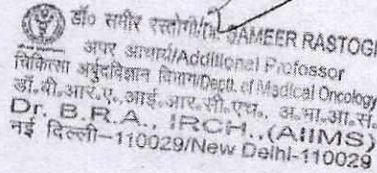 डॉ० समीर रस्तोगी/Dr. SAMEER RASTOGI
अपर आचार्य/Additional Professor
चिकित्सा अर्बुदविज्ञान विभाग/Deptt. of Medical Oncology
डॉ.बी.आर.ए.,आई.आर.सी.एच., अ.भा.आ.सं.
Dr. B.R.A., IRCH.,(AIIMS)
नई दिल्ली-110029/New Delhi-110029